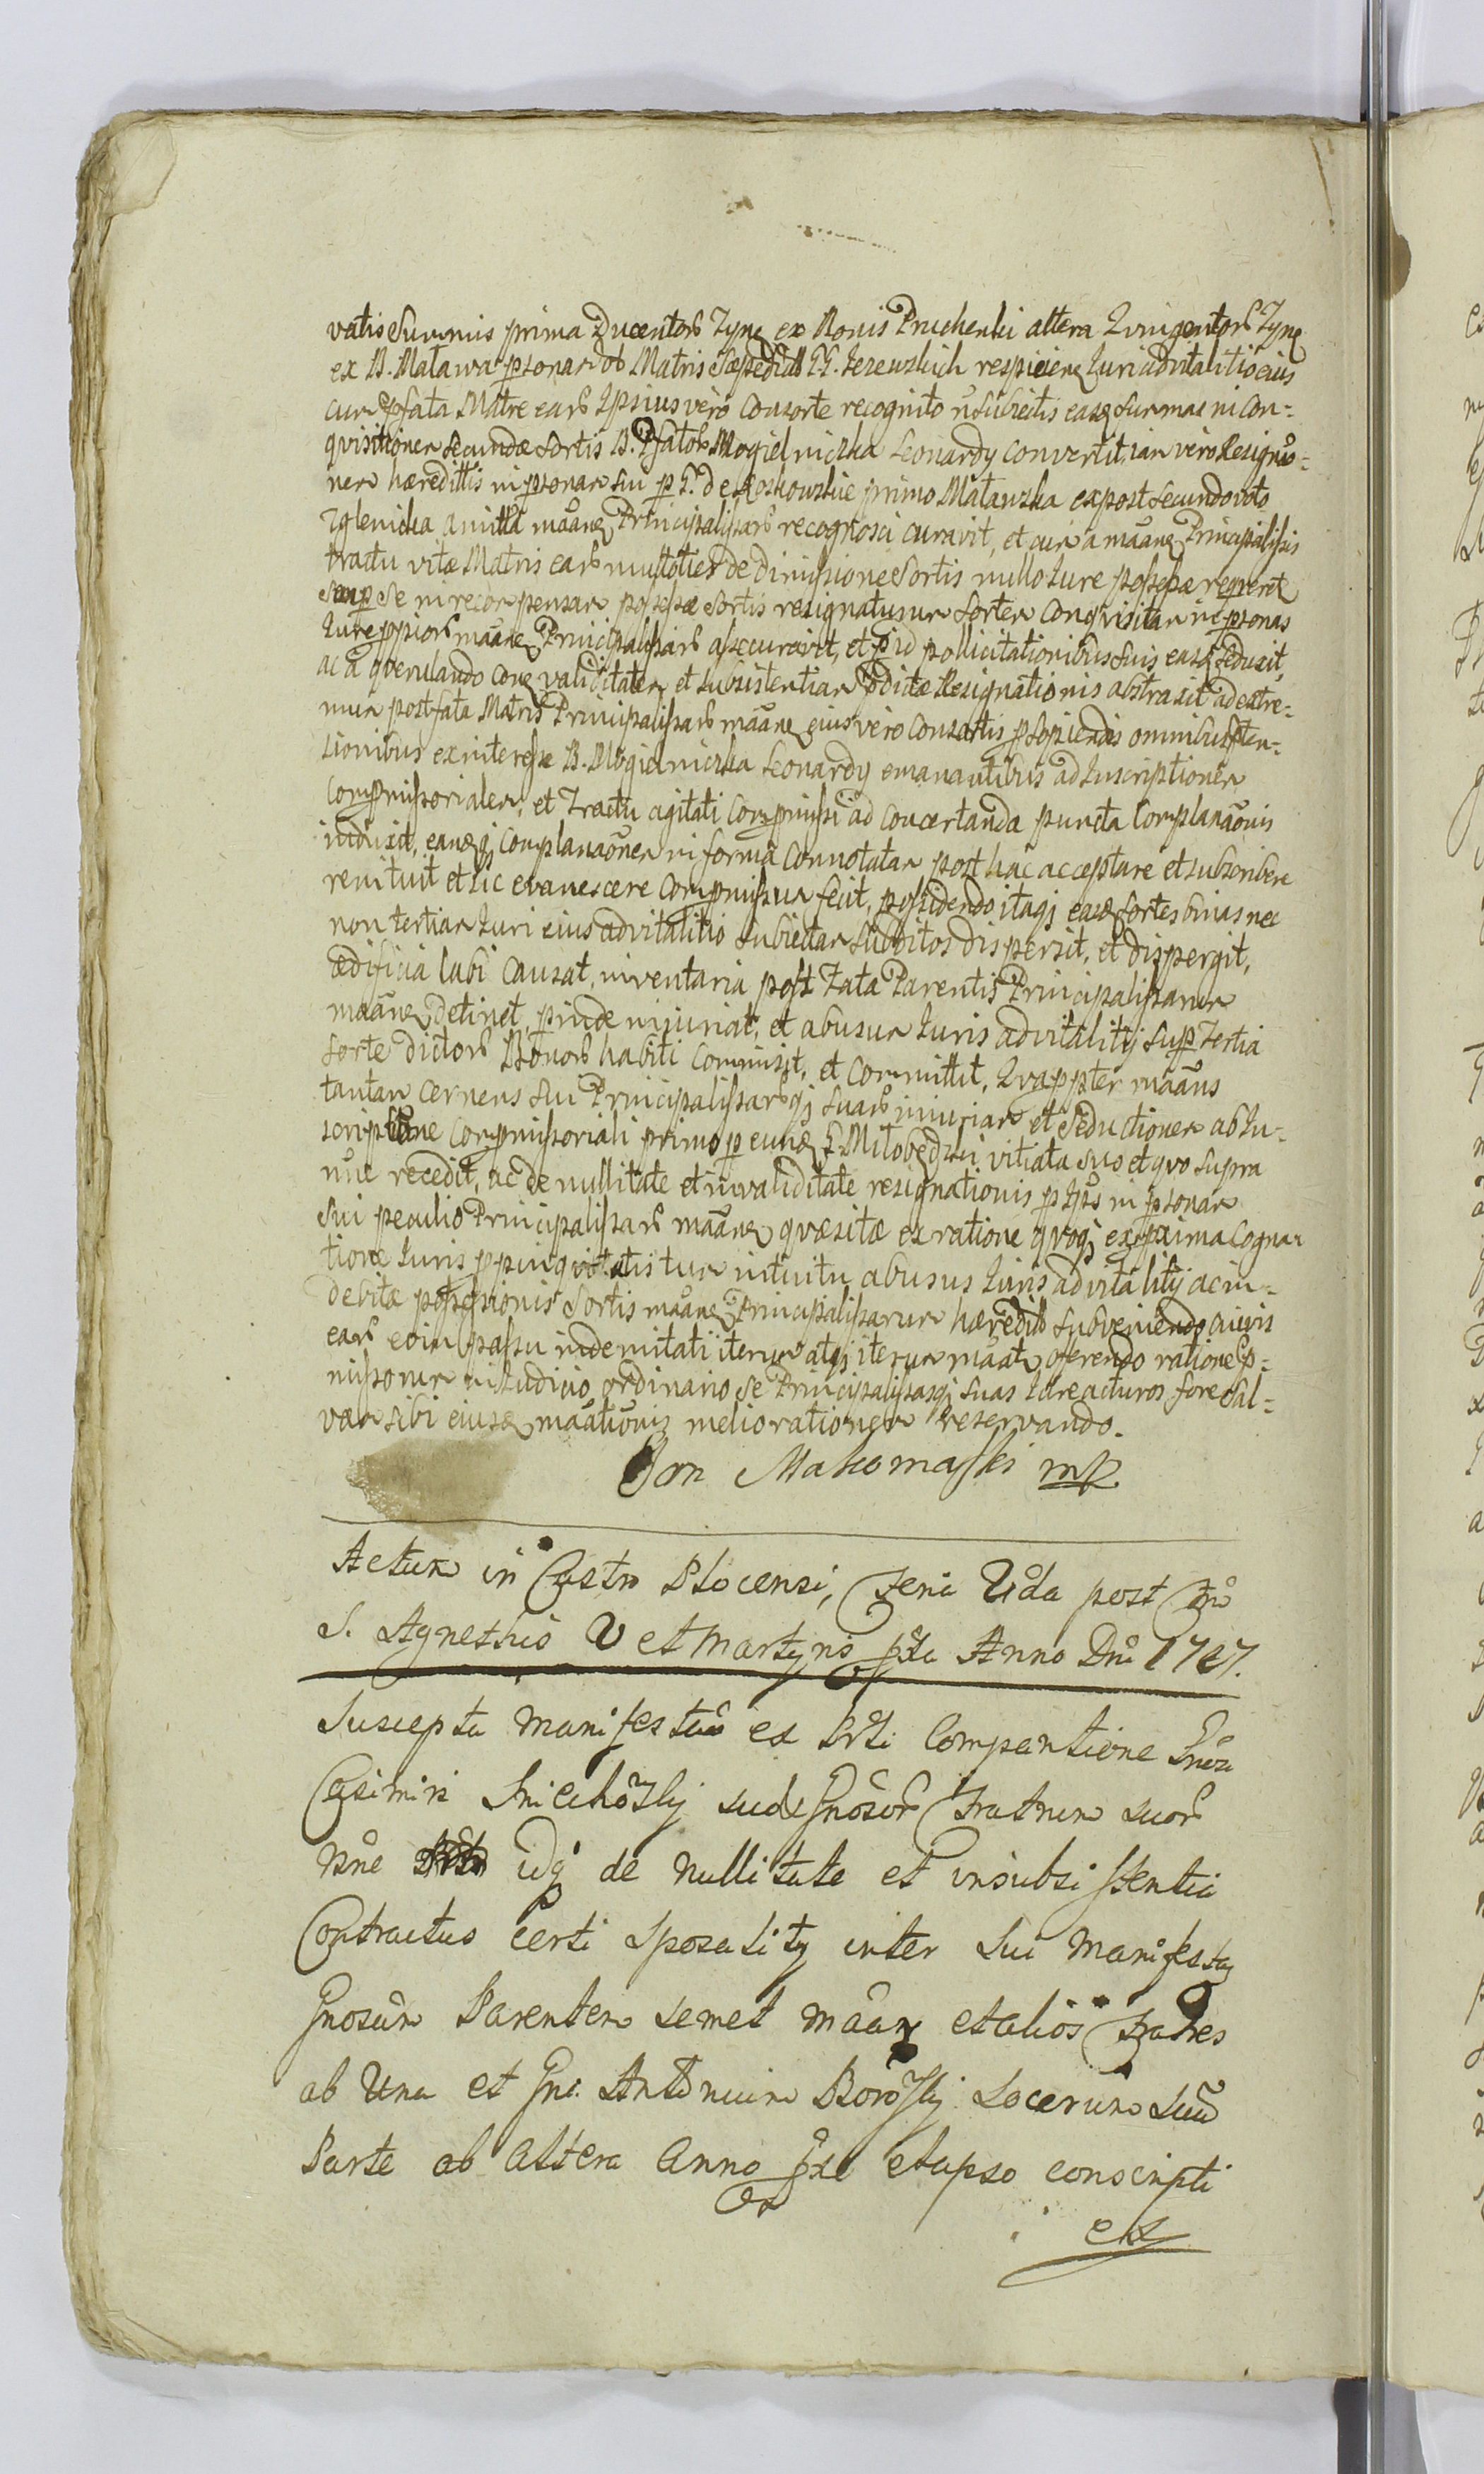 vatis Summis prima Ducentors Tyne ex Bonis Pruchenki altera Quingentors Tyne
ex B. Malawa psonar ob Matris Sæpedict GG. Jezewskich respiciene Juri advitalitio eius
cum Pfata Matre ears Ipsius vero Consorte recognito n subiectis easq Summas in Con-
qvisitioner secundæ Sortis B. Pfators Mogielniczka Leonardy convertit, iam vero Resigno-
ner hæredittis in psonar sui p G. de Koskowskie primo Matawska expost secundo voto
Zglenicka amittā māane Principalissars recognosci curavit, et cum a māane Principalissis
tractu vitæ Matris ears multoties de dimissione Sortis nullo Jure possessæ requeret
Semp se in recompensar possessæ Sortis resignaturum Sorter conqvisitar in psonas
Jure ppiors māane Principalissars assecuravit, et p id pollicitationibus suis easq seduxit,
ac a qverulando cone validitater et subsistentiar pdictæ Resignationis abstraxit ad extre-
mum post fata Matris Principalissars māane eius vero Consortis p sopiendis omnibus pten-
sionibus ex interesse B. Mogielnicka Leonardy emanantibus ad Inscriptioner
Compromissorialem, et Tractu agitati Compromissi ad Concertanda puncta Complanāonis
induxit, eamqj Complanaōner in forma Connotatar post hac acceptare et subscribere
renituit et sic evanescere Compromissum fecit, possidendo itaqj easq Sortes binas nec
non tertiar Juri eius advitalitio subiectar Subditos dispersit, et dispergit,
ædificia labi causat, inventaria post Fata Parentis Principalissarum
māane detinet, p inde iniuriat, et abusum Juris advitalitij Sup tertia
Sorte dictors Bonors habiti commisit, et committit, Qvappter māans
tantam cernens sui Principalissarsqj Suars iniuriar et Seductioner ab In-
scriptione Compromissoriali primo p eunq G. Milobędzki vitiata suo et qvo Supra
nne recedit, ac de nullitate et invaliditate resignationis p Ipss in psonar
Sui peculio Principalissars māane qvæsitæ ex ratione qvoqj exproxima Cogna-
tione Juris ppinqvitatis tum intuitu abusus Juris advitalitij ac in-
debitæ possessionis Sortis māane Principalissarum hæredit Subveniendo cuivis
ears eo in passu indemnitati iterum atqj iterum māat, offerendo ratione p-
missorum in Judicio ordinario se Principalissasqj Suas Jure acturos fore Sal-
var sibi eiusq māationis melioratione reservando.
Jan Makomaski mp.
Actum in Castro Plocensi, Feria IIda post Fm
S. Agnethis V et Martyris pxa Anno Dni 1747.
Suscepta manifestao ex Prti Comparitione Gnosi
Casimiri Smiechoskj sude Gnosor Fratrum suor
Nne idq de Nullitate et insubsistentia
Contractus certi Sposalitij inter Sui manifestas
Gnosum Parentem semet māan et alios Fratres
ab Una et Gn. Antonium Boroskj Socerum Suum
Parte ab altera Anno pxe elapso conscripti
ex